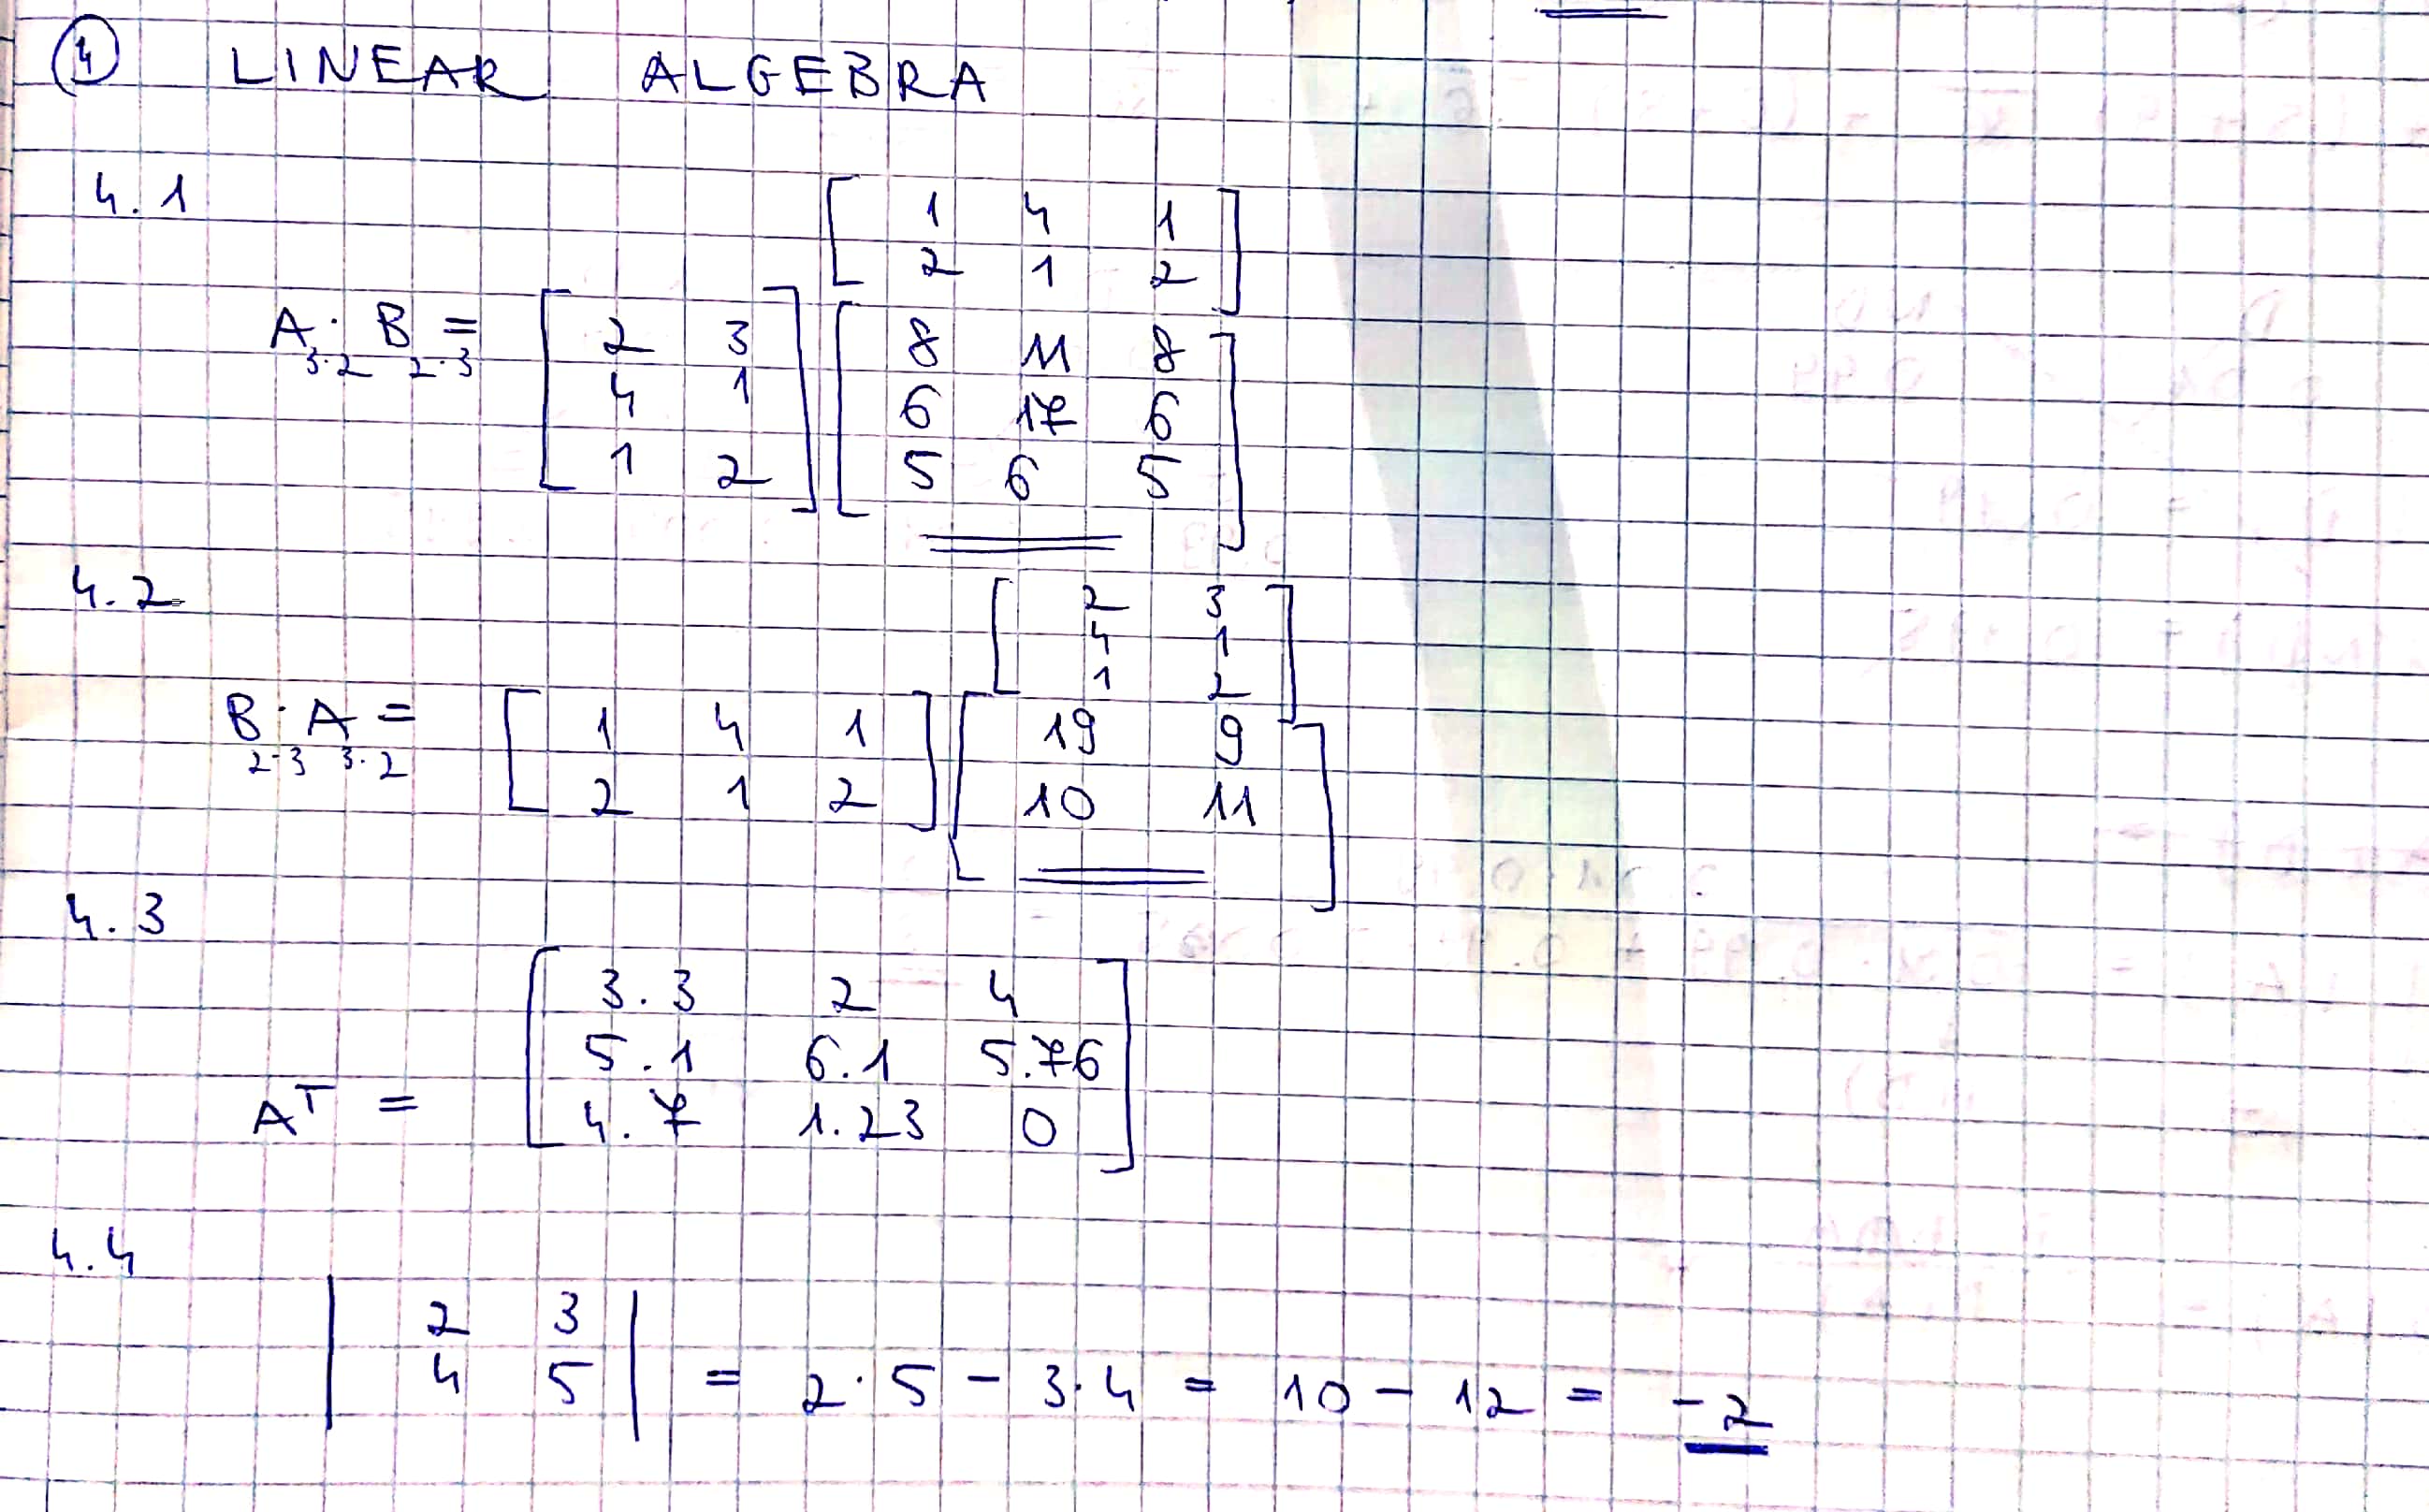 ④ LINEAR ALGEBRA
4.1
1 4 1
2 1 2
A · B =
3·2 2·3
2 3
4 1
1 2
8 11 8
6 17 6
5 6 5
4.2
2 3
4 1
1 2
B · A =
2·3 3·2
1 4 1
2 1 2
19 9
10 11
4.3
3.3 2 4
5.1 6.1 5.76
Aᵀ =
4.7 1.23 0
4.4
2 3
4 5
= 2·5 - 3·4 = 10 - 12 = -2